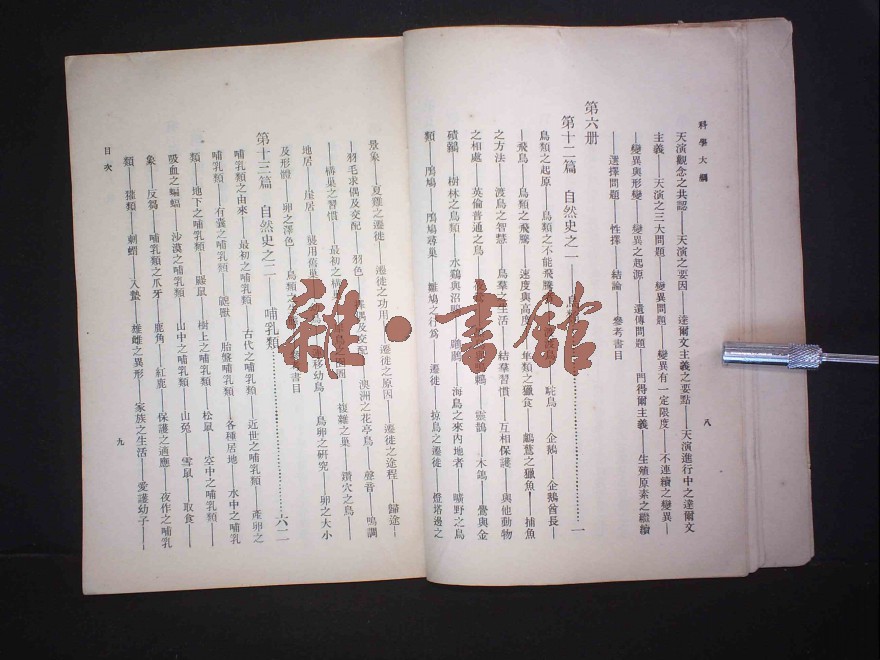 科學大綱
八
天演觀念之共認——天演之要因——達爾文主義之要點——天演進行中之達爾文
主義——天演之三大問題——變異問題——變異有一定限度——不連續之變異——
變異與形變——變異之起源——遺傳問題——門得爾主義——生殖原素之繼續
——選擇問題——性擇——結論——參考書目
第六册
第十二篇 自然史之一——鳥類 一
鳥類之起源——鳥類之不能飛騰者——鴕鳥——企鵝——企鵝酋長——
飛鳥——鳥類之飛騰——速度與高度——隼類之獵食——鸕鶿之獵魚——捕魚
之方法——渡鳥之智慧——鳥羣之生活——結羣習慣——互相保護——與他動物
之相處——英倫普通之鳥——鶇——靈鵲——木鴿——鷽與金
磧鶸——樹林之鳥類——水鷄與沼鴨——鸕鷀——海鳥之來內地者——曠野之鳥
類——鳲鳩——鳲鳩尋巢——雛鳩之行爲——遷徙——掠鳥之遷徙——燈塔邊之
景象——夏雞之遷徙——遷徙之功用——遷徙之原因——遷徙之途程——歸途——
羽毛求偶及交配——羽色——求偶及交配——澳洲之花亭鳥——聲音——鳴調
——構巢之習慣——最初之構巢——巢鳥之困難——複雜之巢——鑽穴之鳥——
地居——崖居——襲用舊巢——鳥——移幼鳥——鳥卵之研究——卵之大小
及形體——卵之澤色——鳥類之——參考書目
第十三篇 自然史之二——哺乳類 六一
哺乳類之由來——最初之哺乳類——古代之哺乳類——近世之哺乳類——產卵之
哺乳類——有囊之哺乳類——袋獸——胎盤哺乳類——各種居地——水中之哺乳
類——地下之哺乳類——鼹鼠——樹上之哺乳類——松鼠——空中之哺乳類——
吸血之蝙蝠——沙漠之哺乳類——山中之哺乳類——山兎——雪鼠——取食——
象——反芻——哺乳類之爪牙——鹿角——紅鹿——保護之適應——夜作之哺乳
類——獾類——刺蝟——入蟄——雄雌之異形——家族之生活——愛護幼子——
目次
九
雜·書館